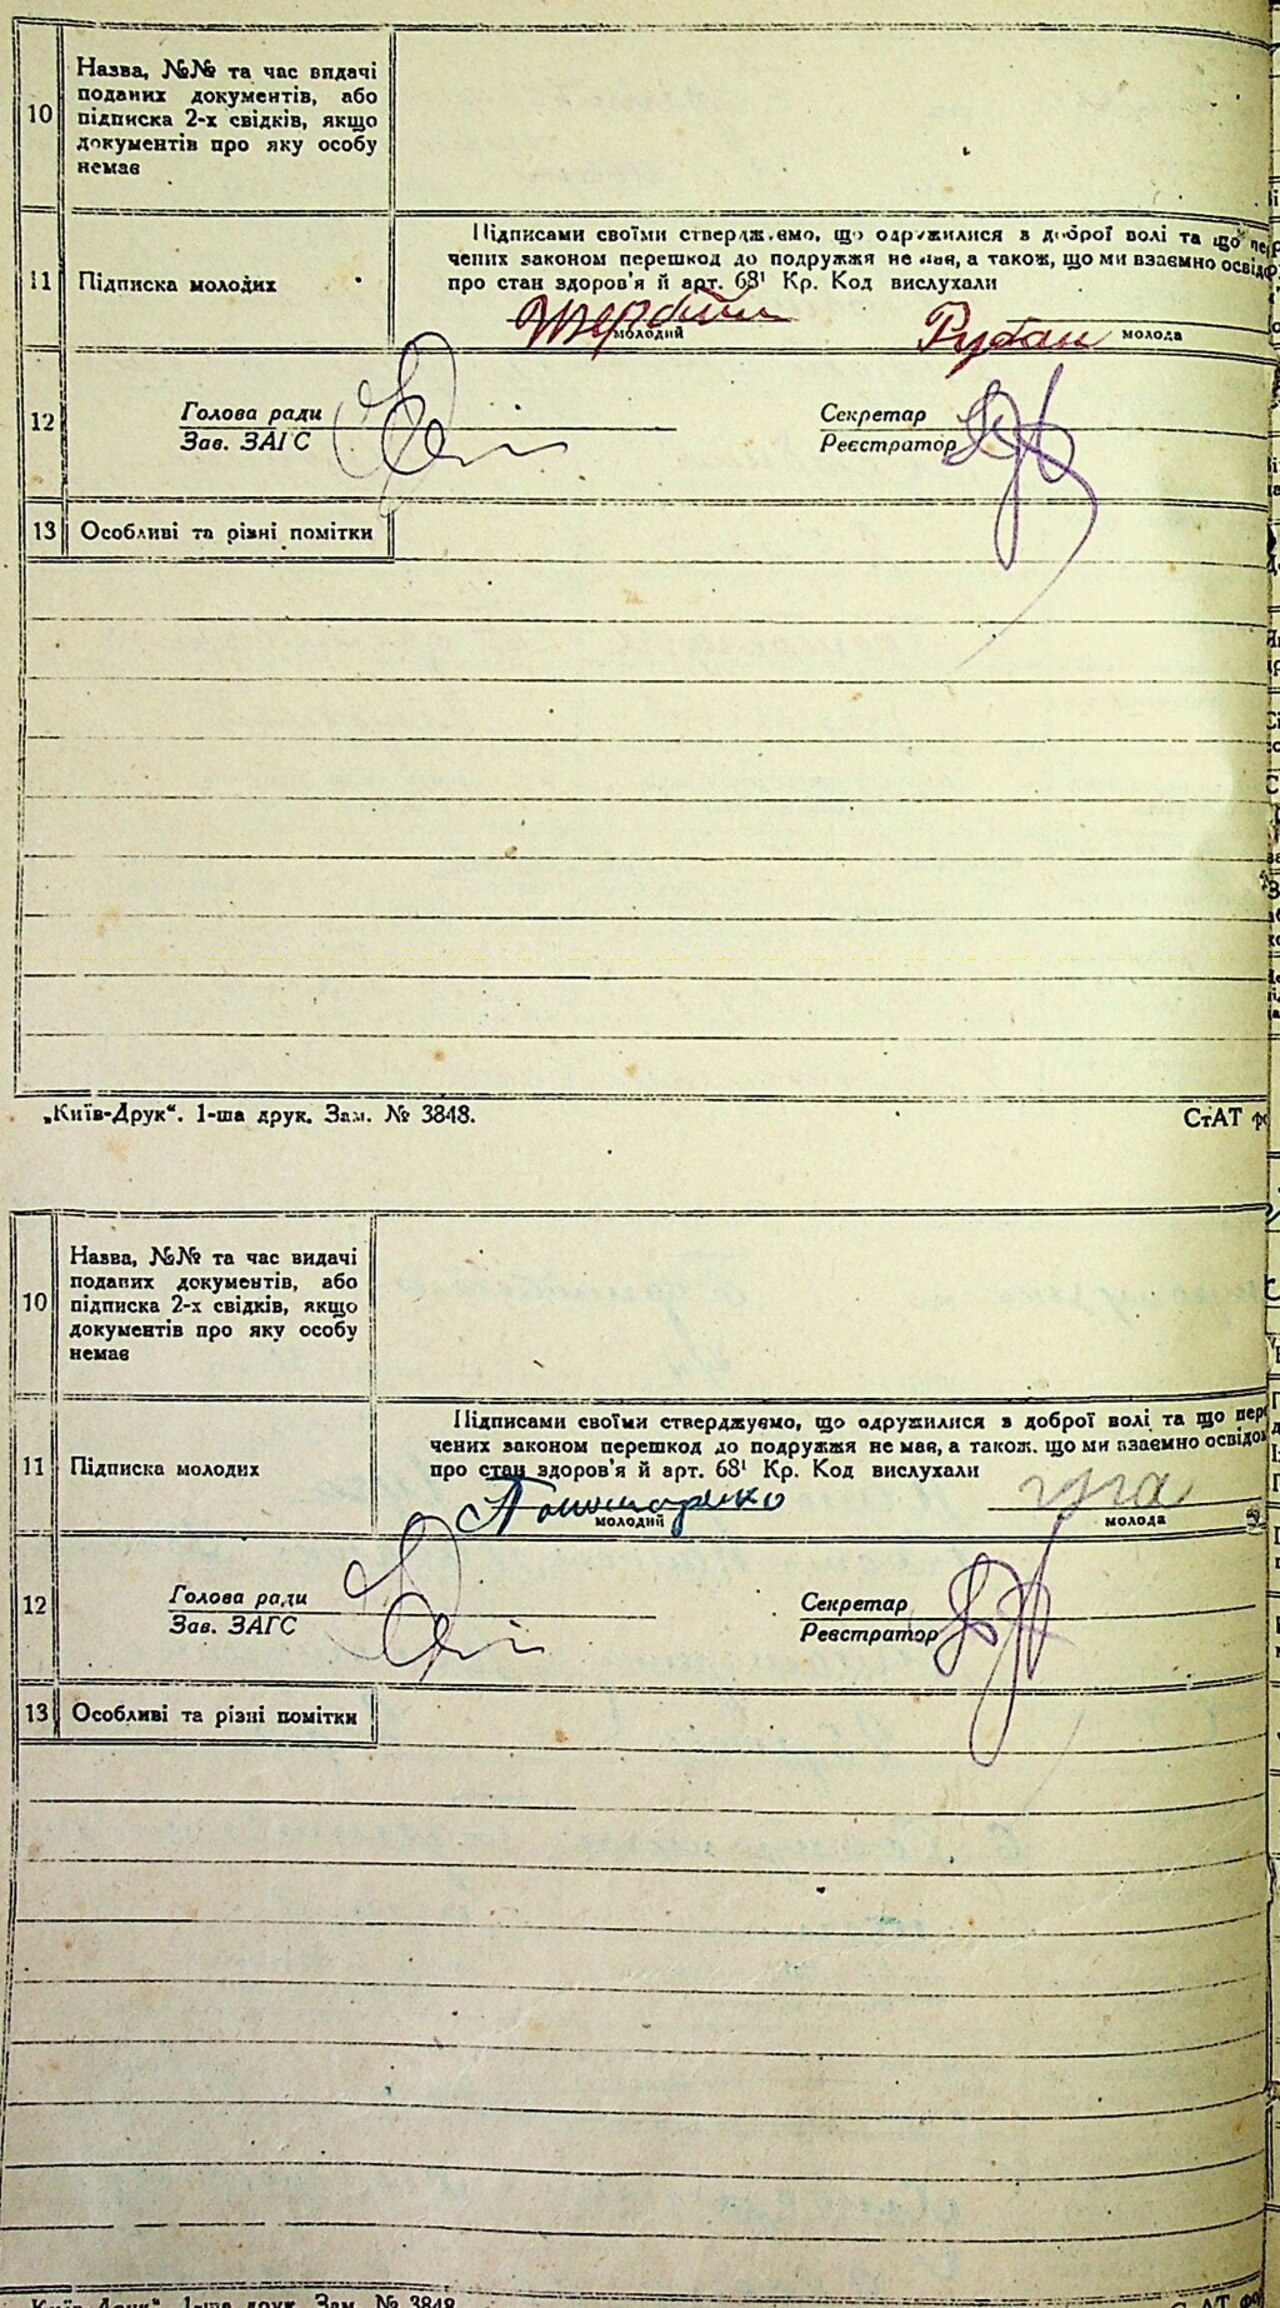 10
Назва, №№ та час видачі
поданих документів, або
підписка 2-х свідків, якщо
документів про яку особу
немає
11
Підписка молодих
Підписами своїми стверджуємо, що одружилися з доброї волі та що
чених законом перешкод до подружжя не має, а також, що ми взаємно
про стан здоров'я й арт. 68¹ Кр. Код вислухали
молодий
Рубан молода
12
Голова ради
Зав. ЗАГС
Секретар
Реєстратор
13 Особливі та різні помітки
„Київ-Друк“. 1-ша друк. Зам. № 3848.
СтАТ
10
Назва, №№ та час видачі
поданих документів, або
підписка 2-х свідків, якщо
документів про яку особу
немає
11
Підписка молодих
Підписами своїми стверджуємо, що одружилися з доброї волі та що
чених законом перешкод до подружжя не має, а також, що ми взаємно
про стан здоров'я й арт. 68¹ Кр. Код вислухали
Пономаренко
молодий
молода
12
Голова ради
Зав. ЗАГС
Секретар
Реєстратор
13 Особливі та різні помітки
„Київ-Друк“. 1-ша друк. Зам. № 3848
СтАТ